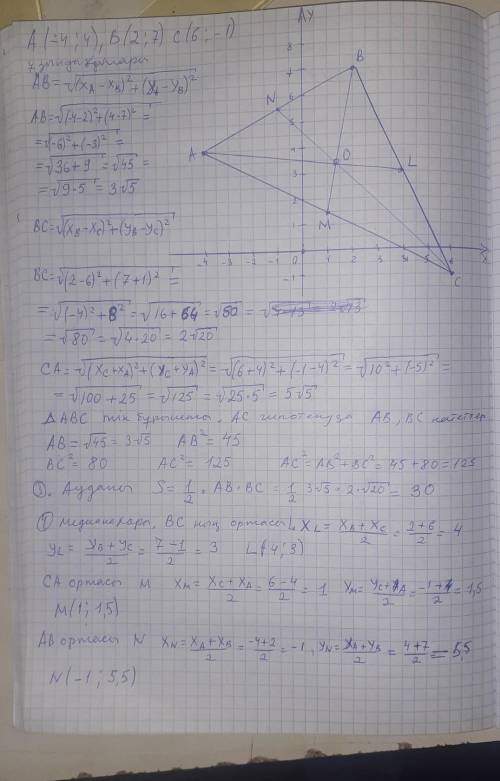 A(-4;4), B(2;7) C(6;-1)
ұзындықтары
AB=√(xA-xB)²+(yA-yB)²
AB=√(-4-2)²+(4-7)² =
=√(-6)²+(-3)² =
=√36+9 =√45 =
=√9·5 = 3√5
BC=√(xB-xC)²+(yB-yC)²
BC=√(2-6)²+(7+1)² =
=√(-4)²+8² =√16+64 =√80 =
=√80 =√4·20 = 2√20
CA=√(xC+xA)²+(yC+yA)² =√(6+4)²+(-1-4)² =√10²+(-5)² =
=√100+25 =√125 =√25·5 = 5√5
△ABC тік бұрышты, AC гипотенуза AB, BC катеттер
AB=√45 = 3√5 AB²=45
BC²=80 AC²=125 AC²=AB²+BC²=45+80=125
③. Ауданы S=1/2·AB·BC=1/2 3√5·2·√20=30
① медианалары, BC ның ортасы L xL=xA+xC/2=2+6/2=4
yL=yB+yC/2=7-1/2=3 L(4;3)
CA ортасы M xM=xC+xA/2=6-4/2=1 yM=yC+yA/2=-1+4/2=1,5
M(1;1,5)
AB ортасы N xN=xA+xB/2=-4+2/2=-1, yN=yA+yB/2=4+7/2=5,5
N(-1;5,5)
y
8
7
6
5
4
3
2
1
-1
-4 -3 -2 -1 1 2 3 4 5 6 x
A
B
C
N
O
L
M